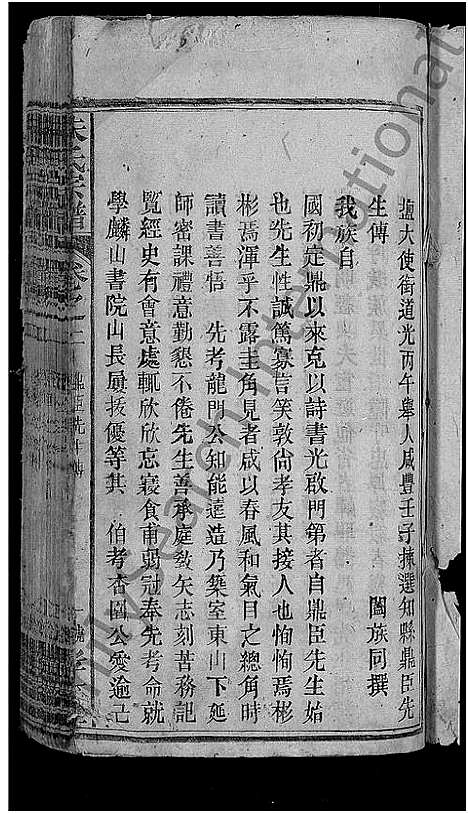 鹽大使銜道光丙午舉人咸豐壬子揀選知縣鼎臣先
生傳
闔族同撰
我族自
國初定鼎以來克以詩書光啟門第者自鼎臣先生始
也先生性誠篤寡言笑敦尙孝友其接人也恂恂焉彬
彬焉渾乎不露圭角見者咸以春風和氣目之總角時
讀書善悟 先考龍門公知能遠造乃築室東山下延
師密課禮意勤懇不倦先生善承庭敎矢志刻苦務記
覽經史有會意處輒欣欣忘寢食甫弱冠奉先考命就
學麟山書院山長屢拔優等其 伯考杏園公愛逾己
朱氏宗譜
鼎臣先生傳